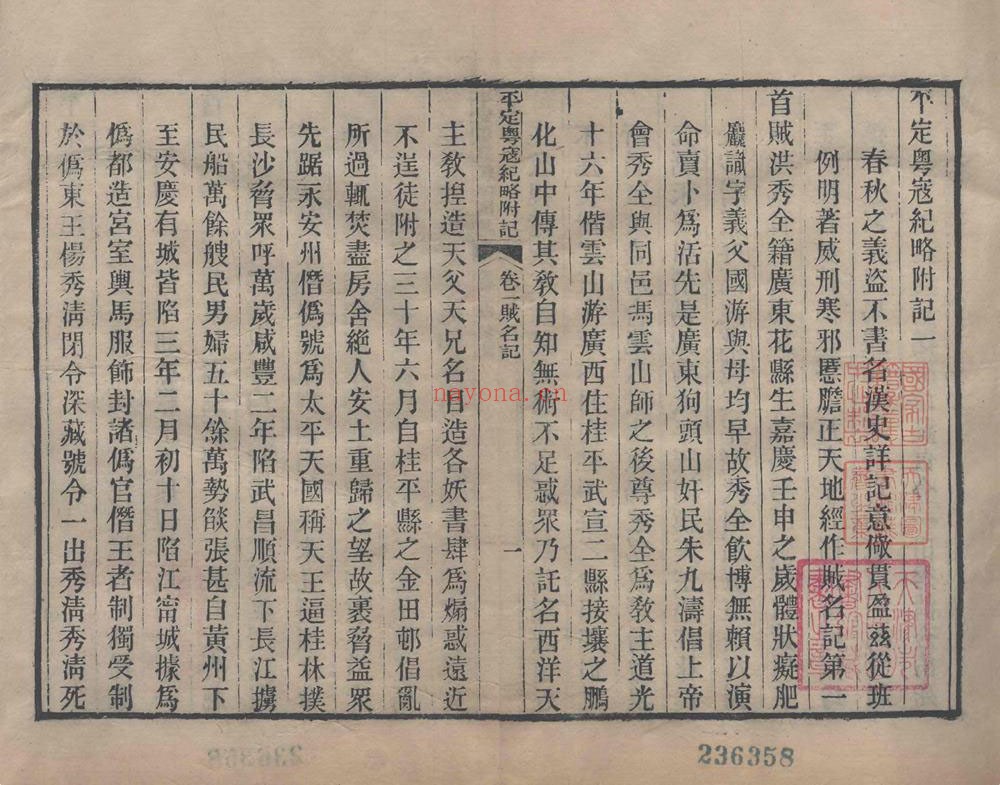 平定粵寇紀略附記一
春秋之義盜不書名漢史詳記意儆貫盈茲從班
例明著威刑寒邪慝膽正天地經作賊名記第一
首賊洪秀全籍廣東花縣生嘉慶壬申之歲體狀癡肥
麤識字義父國游與母均早故秀全飲博無賴以演
命賣卜爲活先是廣東狗頭山奸民朱九濤倡上帝
會秀全與同邑馮雲山師之後尊秀全爲教主道光
十六年偕雲山游廣西住桂平武宣二縣接壤之鵬
化山中傳其教自知無術不足惑眾乃託名西洋天
平定粵寇紀略附記
卷一賊名記
一
主教揑造天父天兄名目造各妖書肆爲煽惑遠近
不逞徒附之三十年六月自桂平縣之金田邨倡亂
所過輒焚盡房舍絕人安土重歸之望故裹脅益眾
先踞永安州僭僞號爲太平天國稱天王逼桂林撲
長沙脅眾呼萬歲咸豐二年陷武昌順流下長江擄
民船萬餘艘民男婦五十餘萬勢燄張甚自黃州下
至安慶有城皆陷三年二月初十日陷江甯城據爲
僞都造宮室輿馬服飾封諸僞官僭王者制獨受制
於僞東王楊秀淸閉令深藏號令一出秀淸秀淸死
nayona.cn
236358